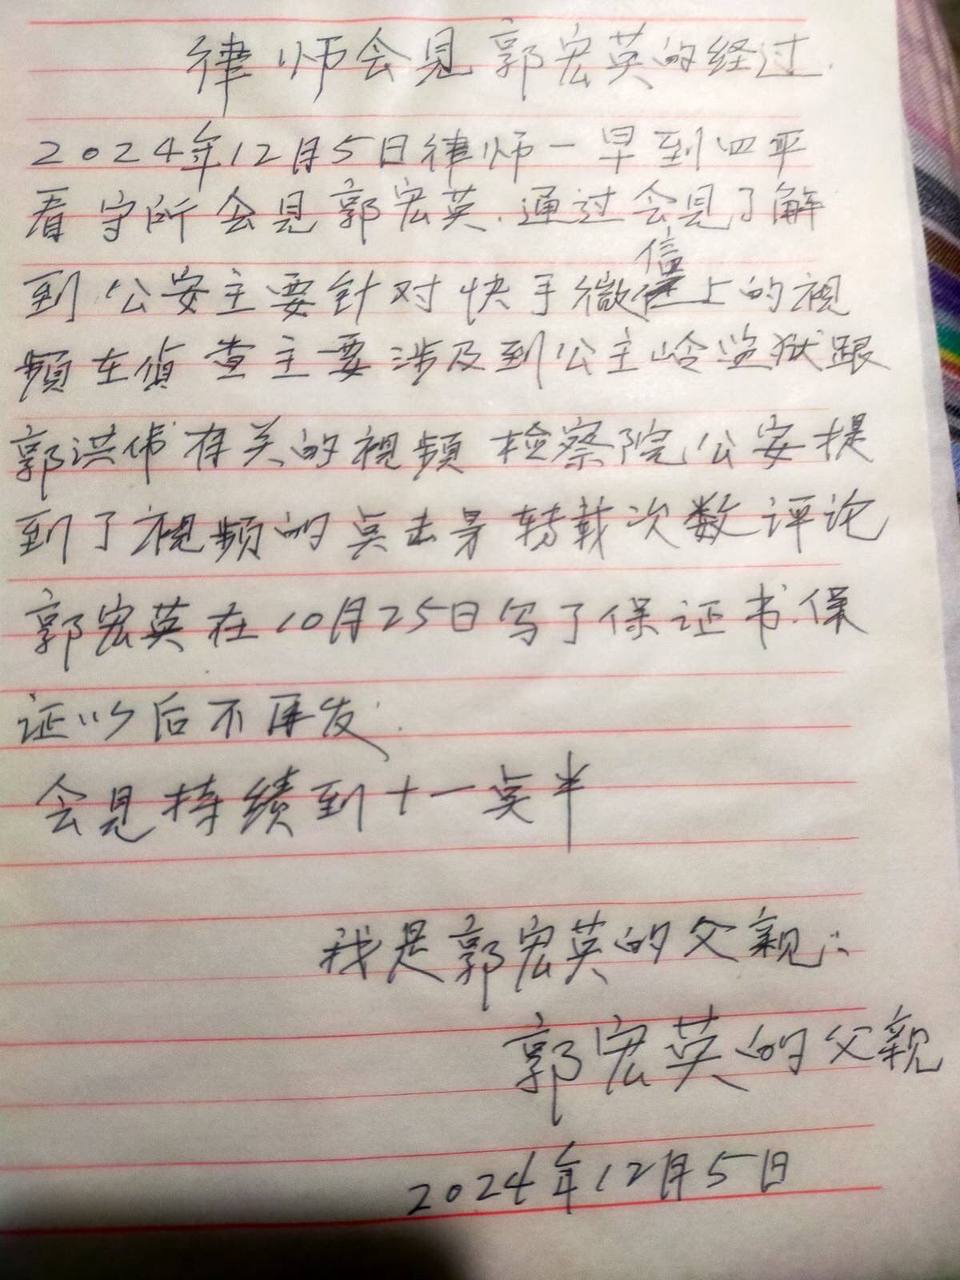 律师会见郭宏英的经过.
2024年12月5日律师一早到四平
看守所会见郭宏英.通过会见了解
到公安主要针对快手微信上的视
频在侦查主要涉及到公主岭监狱跟
郭洪伟有关的视频 检察院公安提
到了视频的点击率转载次数评论
郭宏英在10月25日写了保证书.保
证以后不再发.
会见持续到十一点半
我是郭宏英的父亲:
郭宏英的父亲
2024年12月5日